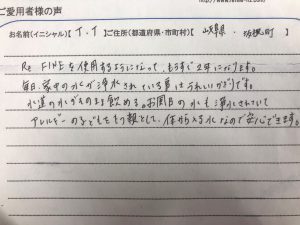 ご愛用者様の声
お名前(イニシャル)【 T . T 】ご住所(都道府県・市町村)【 山梨県 ・ 町 】
Re FINEを使用するようになって、もうすぐ2年になります。
毎日、家中の水が浄水されている事はうれしいかぎりです。
水道の水がそのまま飲める。お風呂の水も浄化されていて
アレルギーの子どもをもつ親として、体から入る水なので安心できます。